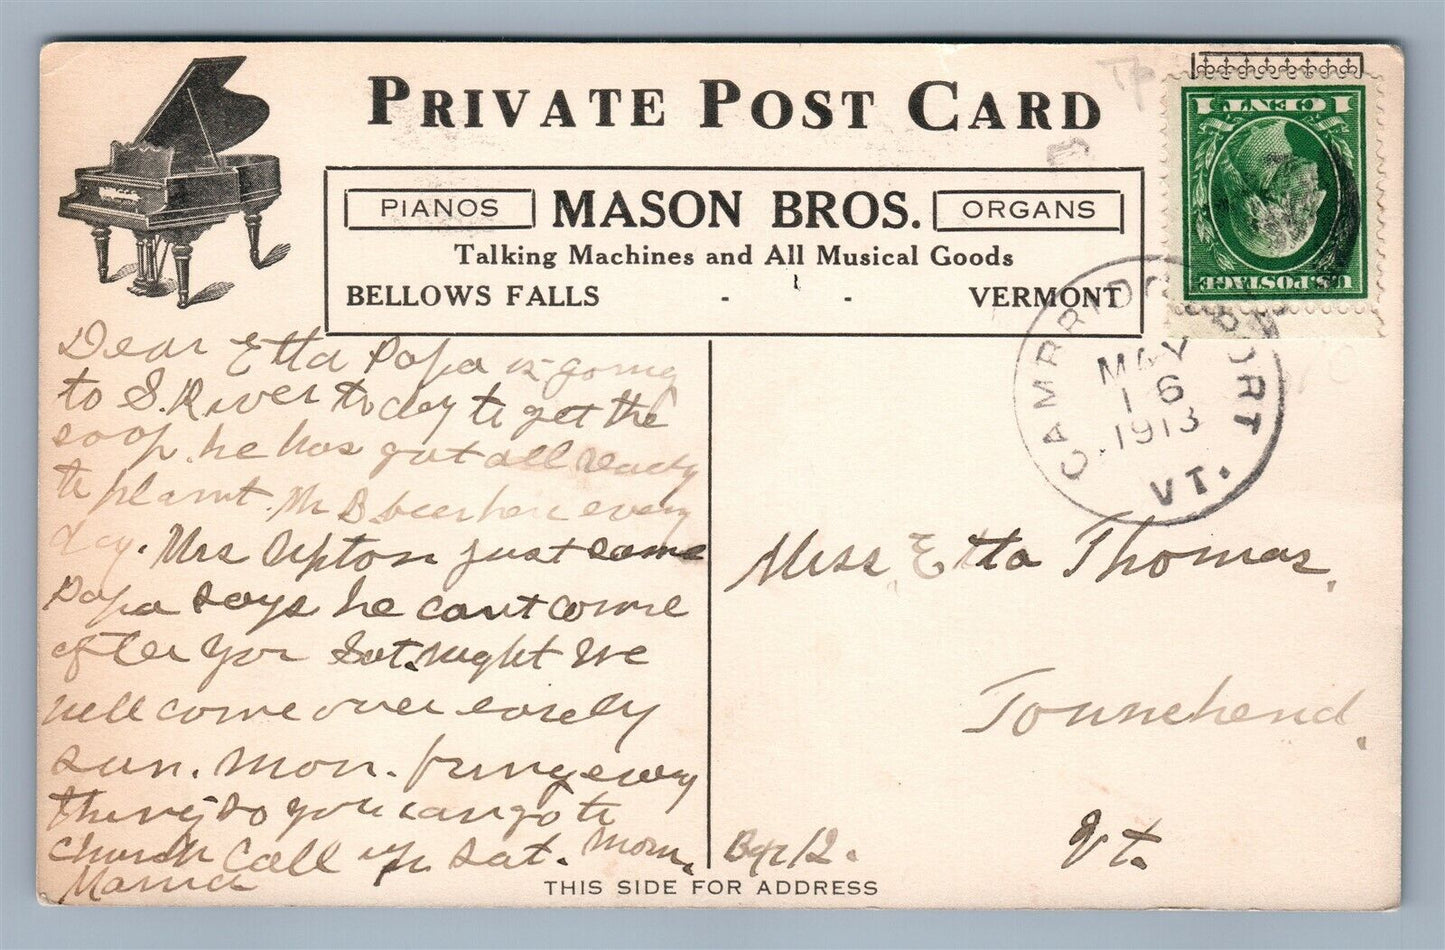 PRIVATE POST CARD
PIANOS MASON BROS. ORGANS
Talking Machines and All Musical Goods
BELLOWS FALLS - - VERMONT
1 CENT 1
U.S. POSTAGE
CAMBRIDGEPORT
MAY
16
1913
VT.
Dear Etta Papa is going
to S. River to day to get the
soap. he has got all ready
to plant. Mr B. been here every
day. Mrs Upton just came
Papa says he cant come
after you Sat. night We
will come over early
sun. mon. bring every
thing so you can go to
church Call up sat. morn.
Mama
Miss Etta Thomas,
Townshend,
Vt.
Box 12.
THIS SIDE FOR ADDRESS